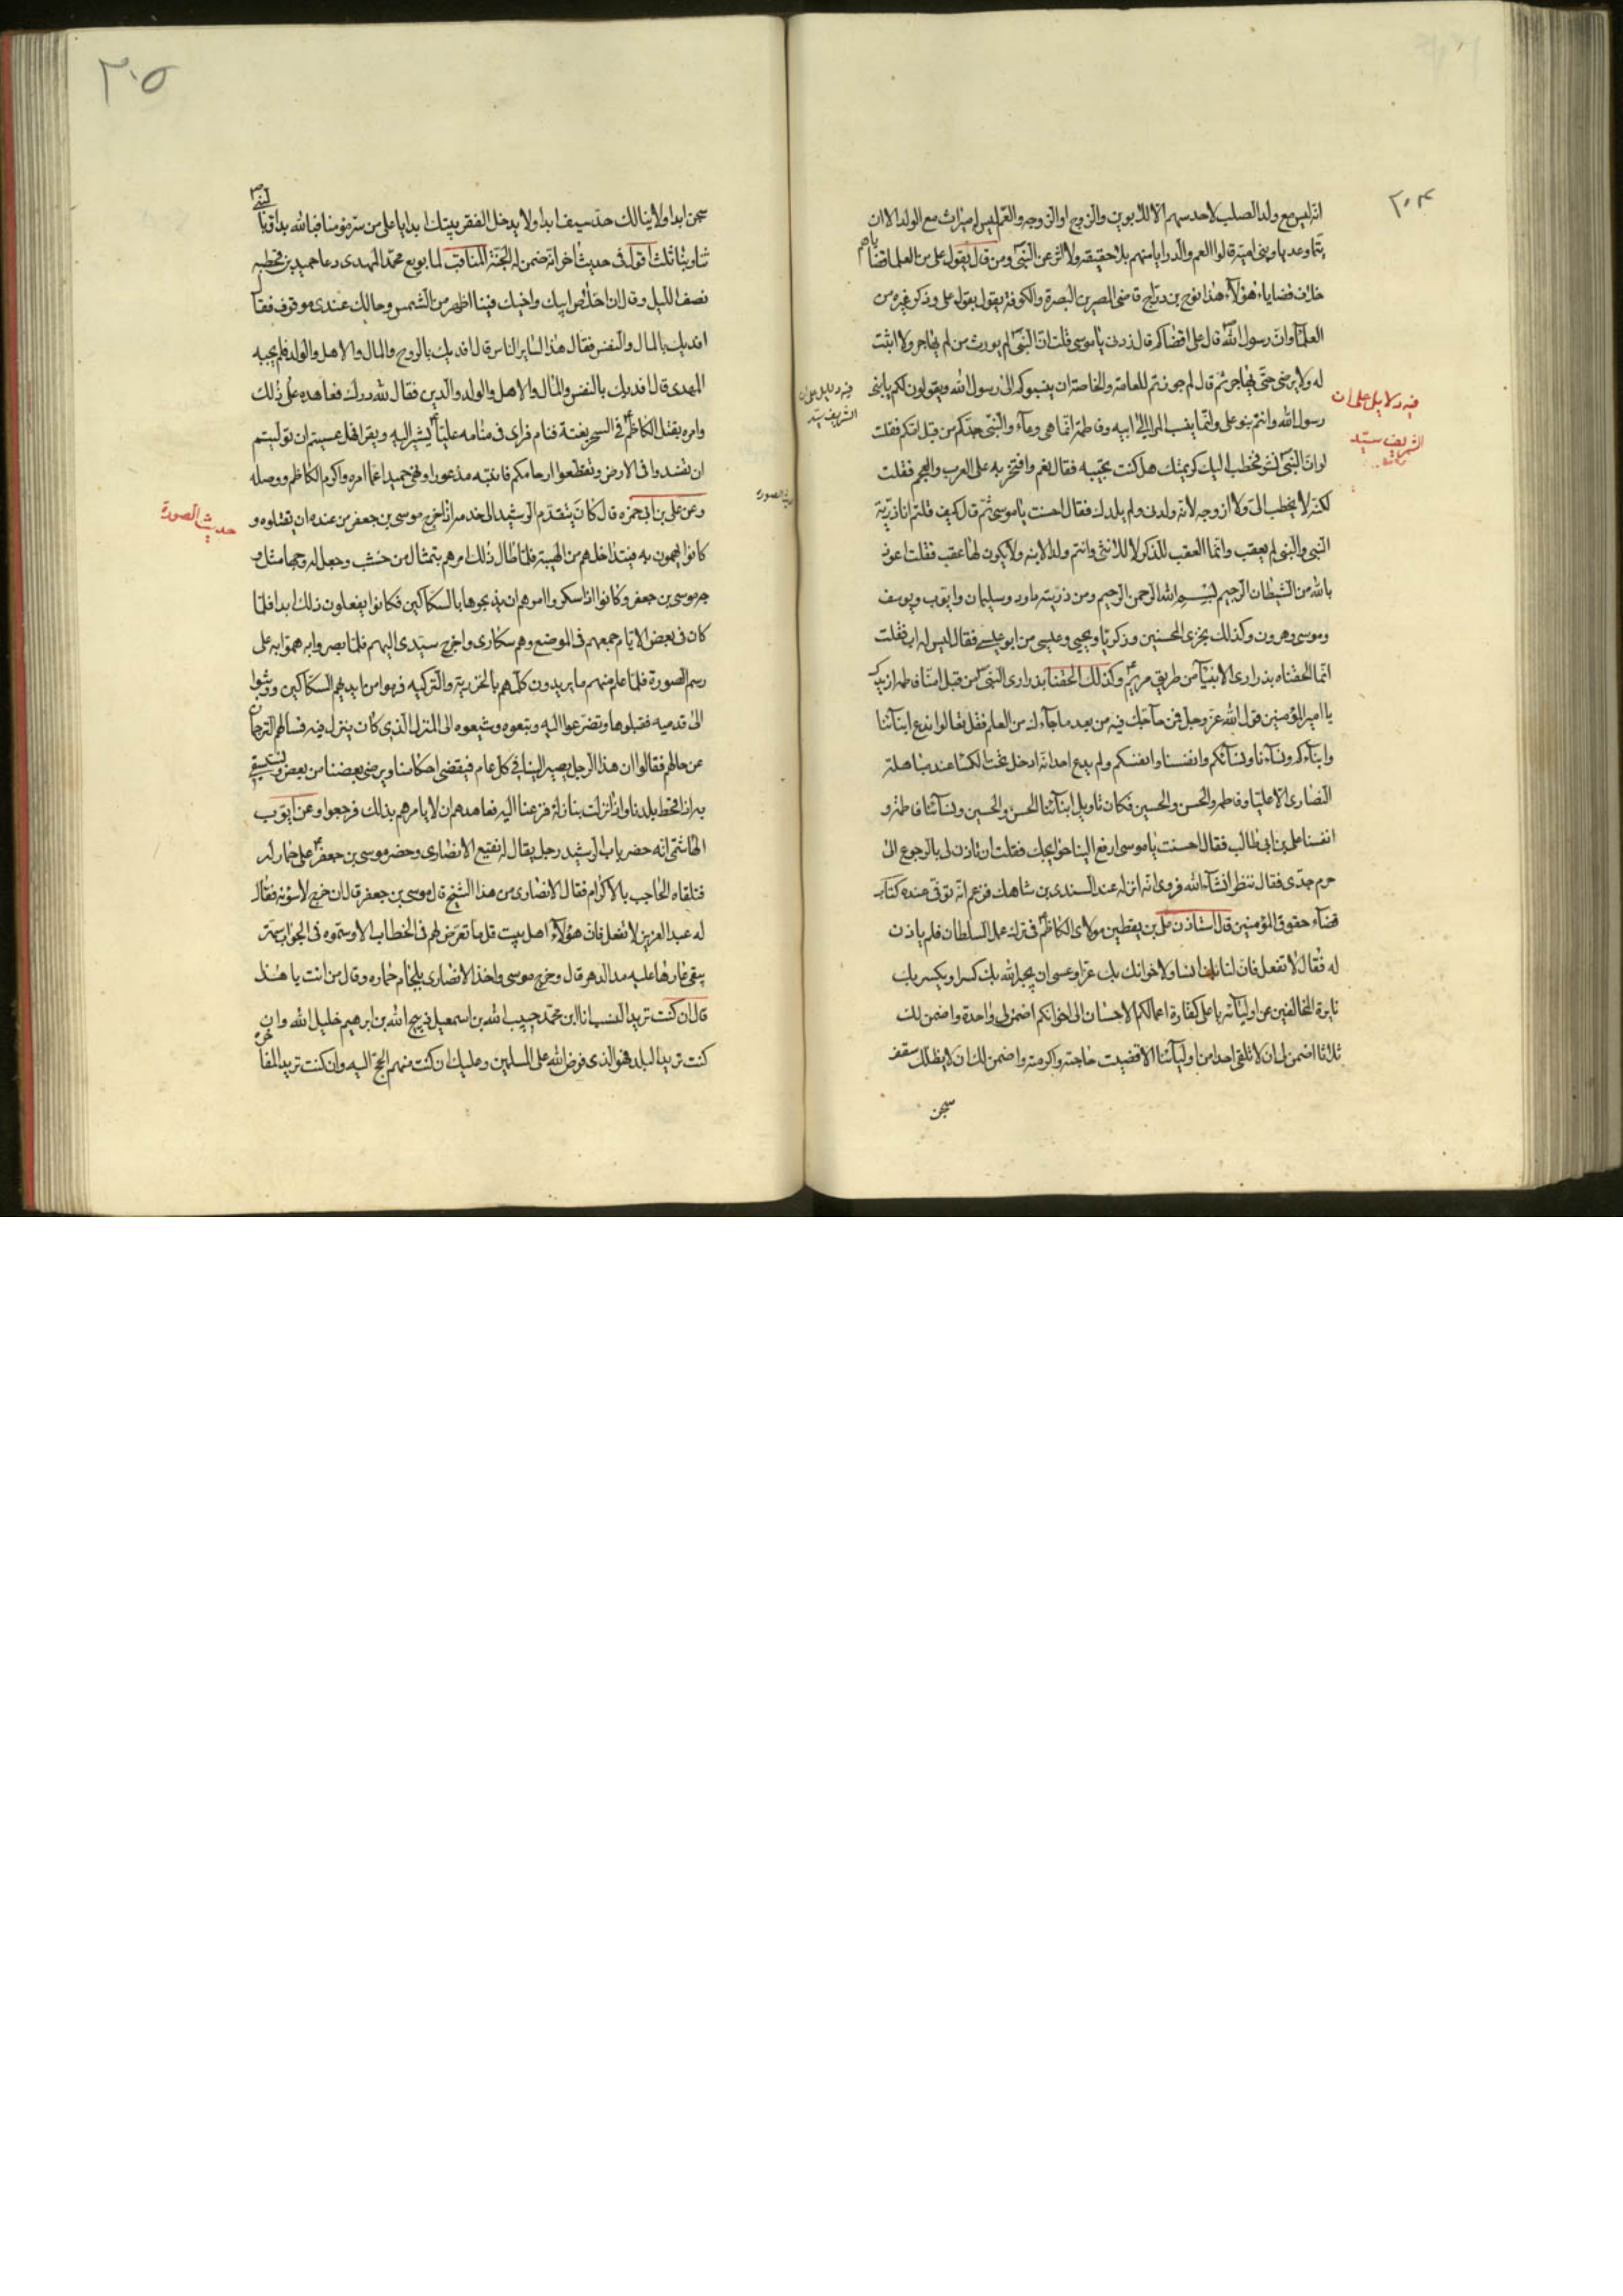 ٢٠٤
انه ليس مع ولد الصلب لاحد سهم الا للابوين والزوج او الزوجة والعم ليس له ميراث مع الولد الا ان
تيما وعديا وبنى امية قالوا العم والد رايا منهم بلا حقيقة ولا اثر عن النبى ومن قال بقول على من العلما قضاياهم
خلاف قضايا هؤلاء هذا نوح بن دراج قاضى المصرين البصرة والكوفة يقول بقول على وذكر غيره من
العلماء وان رسول الله قال على اقضاكم قال زدنى يا موسى قلت ان النبى لم يورث من لم يهاجر ولا اثبت
له ولا يرضى حتى يهاجر ثم قال لم جوزتم للعامة والخاصة ان ينسبوكم الى رسول الله ويقولون لكم يا بنى
رسول الله وانتم بنو على وانما ينسب المرا الى ابيه وفاطمة انما هى وعاء والنبى جدكم من قبل امكم فقلت
لو ان النبى نشر فخطب اليك كريمتك هل كنت تجيبه فقال نعم وافتخر به على العرب والعجم فقلت
لكنه لا يخطب الى ولا ازوجه لانه ولدنى ولم يلدك فقال احسنت يا موسى ثم قال كيف قلتم انا ذرية
النبى والنبى لم يعقب وانما العقب للذكر لا للانثى وانتم ولد الابنة ولا يكون لها عقب فقلت اعوذ
بالله من الشيطان الرجيم بسم الله الرحمن الرحيم ومن ذريته داود وسليمان وايوب ويوسف
وموسى وهرون وكذلك نجزى المحسنين وزكريا ويحيى وعيسى من ابو عيسى فقال ليس له اب فقلت
انما الحقناه بذرارى الانبياء من طريق مريم وكذلك الحقنا بذرارى النبى من قبل امنا فاطمة ازيدك
يا امير المؤمنين قول الله عز وجل فمن حاجك فيه من بعد ما جاءك من العلم فقل تعالوا ندع ابناءنا
وابناءكم ونساءنا ونساءكم وانفسنا وانفسكم ولم يدع احد انه ادخل تحت الكسا عند مباهلة
النصارى الا عليا وفاطمة والحسن والحسين فكان تاويل ابناءنا الحسن والحسين ونساءنا فاطمة و
انفسنا على بن ابى طالب فقال احسنت يا موسى ارفع الينا حوايجك فقلت ان تاذن لى بالرجوع الى
حرم جدى فقال ننظر انشاء الله فروى انه انزله عند السندى بن شاهك فزعم انه توفى عنده كتاب
قضاء حقوق المؤمنين قال استاذن على بن يقطين مولاى الكاظم فى ترك عمل السلطان فلم ياذن
له فقال لا تفعل فان لنا بك انسا ولاخوانك بك عزا وعسى ان يجبر الله بك كسرا ويكسر بك
نايرة المخالفين عن اوليائه يا على كفارة اعمالكم الاحسان الى اخوانكم اضمن لى واحدة واضمن لك
ثلاثا اضمن لى ان لا تلقى احدا من اوليائنا الا قضيت حاجته واكرمته واضمن لك ان لا يظلك سقف
سجن
فيه دلايل على ان
الشريف سيد
فيه دليل على ان
الشريف سيد
٢٠٥
سجن ابدا ولا ينالك حد سيف ابدا ولا يدخل الفقر بيتك ابدا يا على من سر مؤمنا فبالله بدا وبالنبى
ثنا وبنا ثلث اقول فى حديث اخر انه ضمن له الجنة المناقب لما بويع محمد المهدى دعا حميد بن قحطبه
نصف الليل وقال ان اخلاص ابيك واخيك فينا اظهر من الشمس وحالك عندى موقوف فقال
افديك بالمال والنفس فقال هذا لساير الناس قال افديك بالروح والمال والاهل والولد فلم يجبه
المهدى قال افديك بالنفس والمال والاهل والولد والدين فقال لله درك فعاهده على ذلك
وامره بقتل الكاظم فى السحر بغتة فنام فراى فى منامه عليا يشير اليه ويقرا فهل عسيتم ان توليتم
ان تفسدوا فى الارض وتقطعوا ارحامكم فانتبه مذعورا ونهى حميدا عما امره واكرم الكاظم ووصله
وعن على بن ابى حمزه قال كان يتقدم الرشيد الى خدمه اذا خرج موسى بن جعفر من عنده ان يقتلوه و
كانوا يهمون به فيتداخلهم من الهيبة فلما طال ذلك امرهم بتمثال من خشب وجعل له وجها مثل و
جه موسى بن جعفر وكانوا اذا سكروا امرهم ان يذبحوها بالسكاكين فكانوا يفعلون ذلك ابدا فلما
كان فى بعض الايام جمعهم فى الموضع وهم سكارى واخرج سيدى اليهم فلما بصروا به هموا به على
رسم الصورة فلما علم منهم ما يريدون كلمهم بالخزرية والتركيه فرموا من ايديهم السكاكين ووثبوا
الى قدميه فقبلوها وتضرعوا اليه وتبعوه وشيعوه الى المنزل الذى كان ينزل فيه فسالهم الترجمان
عن حالهم فقالوا ان هذا الرجل يصير الينا فى كل عام فيقضى احكامنا ويرضى بعضنا من بعض ونستسقى
به اذا قحط بلدنا واذا نزلت بنا نازلة فزعنا اليه فعاهدهم ان لا يامرهم بذلك فرجعوا وعن ايوب
الهاشمى انه حضر باب الرشيد رجل يقال له نفيع الانصارى وحضر موسى بن جعفر على حمار له
فتلقاه الحاجب بالاكرام فقال الانصارى من هذا الشيخ قال موسى بن جعفر قال ان خرج لاسؤنه فقال
له عبد العزيز لا تفعل فان هؤلاء اهل بيت قل ما تعرض لهم فى الخطاب الا وسموه فى الجواب سمة
يبقى عارها عليه مد الدهر قال وخرج موسى واخذ الانصارى بلجام حماره وقال من انت يا هذا
قال ان كنت تريد النسب انا ابن محمد حبيب الله بن اسمعيل ذبيح الله بن ابرهيم خليل الله وان
كنت تريد البلد فهو الذى فرض الله على المسلمين وعليك ان كنت منهم الحج اليه وان كنت تريد المفاخره
حديث الصورة
حديث الصورة